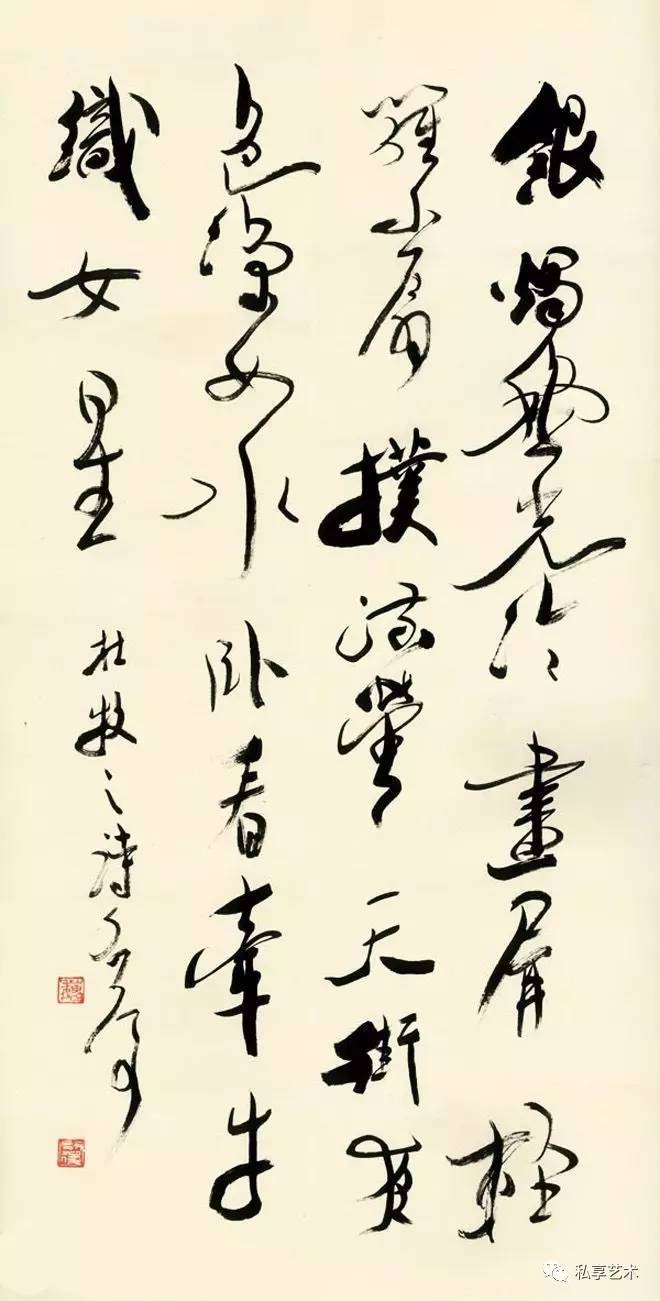 銀燭秋光冷畫屏輕
羅小扇撲流螢天街夜
色涼如水卧看牽牛
織女星
杜牧之詩
私享艺术